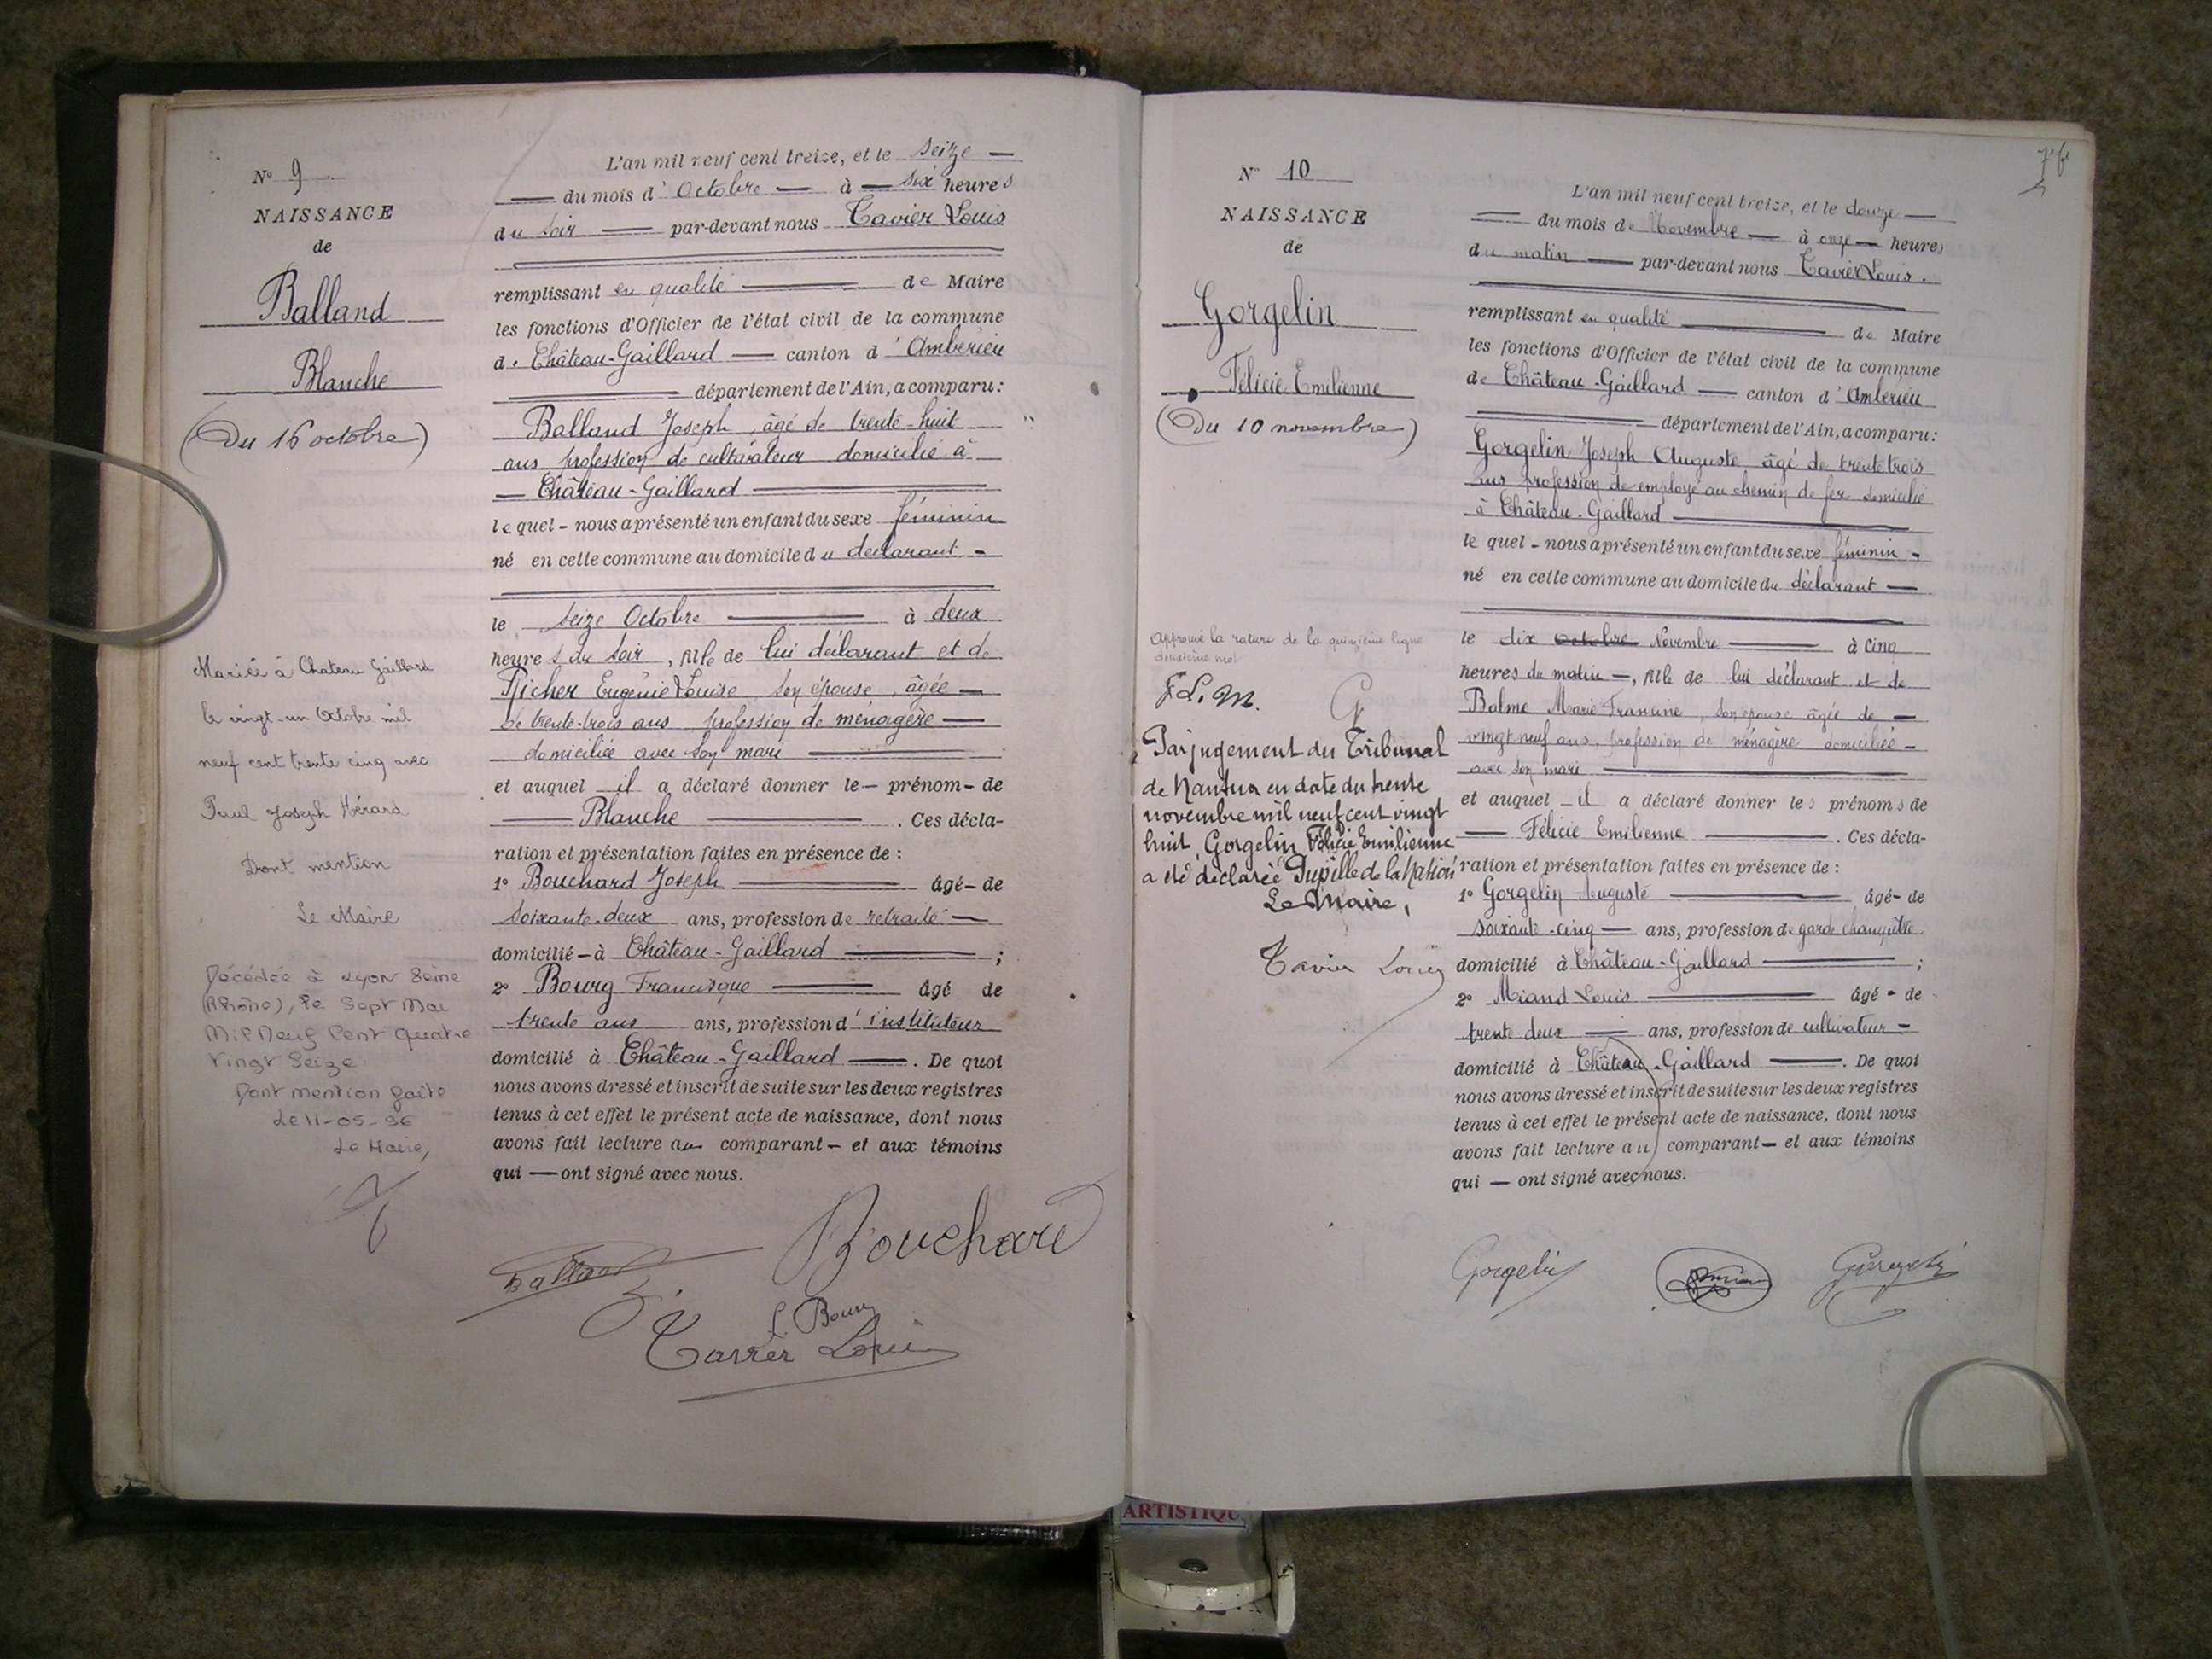 N° 9
NAISSANCE
de
Balland
Blanche
(Du 16 octobre)
Mariée à Chateau Gaillard
le vingt-un Octobre mil
neuf cent trente cinq avec
Paul Joseph Hérard
Dont mention
Le Maire
Décédée à Lyon 8eme
(Rhône), le Sept Mai
Mil Neuf Cent Quatre
Vingt Seize
Dont mention faite
Le 11-05-96
Le Maire,
L'an mil neuf cent treize, et le seize —
— du mois d' Octobre — à — six heures
du soir — par-devant nous Tavier Louis
remplissant en qualité — de Maire
les fonctions d'Officier de l'état civil de la commune
de Château-Gaillard — canton d' Ambérieu
— département de l'Ain, a comparu :
Balland Joseph, âgé de trente-huit
ans profession de cultivateur domicilié à
— Château-Gaillard —
lequel - nous a présenté un enfant du sexe féminin
né en cette commune au domicile du déclarant -
le seize Octobre — à deux
heures du soir, fille de lui déclarant et de
Richer Eugénie Louise, son épouse, âgée —
de trente-trois ans profession de ménagère —
domiciliée avec son mari —
et auquel — il a déclaré donner le — prénom - de
— Blanche — . Ces décla-
ration et présentation faites en présence de :
1° Bouchard Joseph — âgé - de
soixante-deux ans, profession de retraité —
domicilié - à Château-Gaillard — ;
2° Bourg Francisque — âgé de
trente ans ans, profession d' instituteur
domicilié à Château-Gaillard — . De quoi
nous avons dressé et inscrit de suite sur les deux registres
tenus à cet effet le présent acte de naissance, dont nous
avons fait lecture au comparant — et aux témoins
qui — ont signé avec nous.
Bouchard
Balland
Bourg
Tavier Louis
N° 10
NAISSANCE
de
Gorgelin
Félicie Emilienne
(Du 10 novembre)
Approuvé la rature de la quinzième ligne
deuxième mot
Par jugement du Tribunal
de Nantua en date du trente
novembre mil neuf cent vingt
huit, Gorgelin Félicie Emilienne
a été déclarée Pupille de la Nation
Le Maire,
Tavier Louis
L'an mil neuf cent treize, et le douze —
— du mois de Novembre — à onze — heures
du matin — par-devant nous Tavier Louis.
remplissant en qualité — de Maire
les fonctions d'Officier de l'état civil de la commune
de Château-Gaillard — canton d' Ambérieu
— département de l'Ain, a comparu :
Gorgelin Joseph Auguste, âgé de trente trois
ans profession de employé au chemin de fer domicilié
à Château-Gaillard —
lequel - nous a présenté un enfant du sexe féminin -
né en cette commune au domicile du déclarant —
le dix octobre Novembre — à cinq
heures du matin —, fille de lui déclarant et de
Balme Marie Francine, son épouse âgée de —
vingt neuf ans, profession de ménagère domiciliée -
avec son mari —
et auquel — il a déclaré donner les prénoms de
— Félicie Emilienne — . Ces décla-
ration et présentation faites en présence de :
1° Gorgelin Auguste — âgé - de
soixante-cinq — ans, profession de garde champêtre
domicilié à Château-Gaillard — ;
2° Miand Louis — âgé - de
trente deux — ans, profession de cultivateur -
domicilié à Château-Gaillard — . De quoi
nous avons dressé et inscrit de suite sur les deux registres
tenus à cet effet le présent acte de naissance, dont nous
avons fait lecture au comparant — et aux témoins
qui — ont signé avec nous.
Gorgelin
Gorgelin
ARTISTIQU